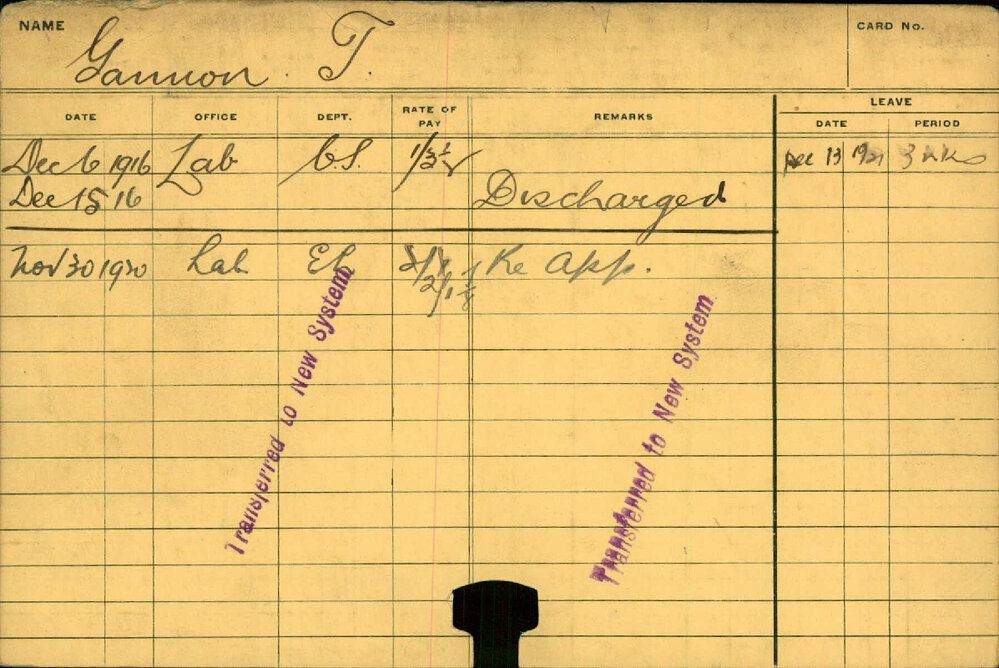 NAME
CARD No.
Gannon. T.
DATE OFFICE DEPT. RATE OF PAY REMARKS LEAVE
DATE PERIOD
Dec 6 1916 Lab C.S. Dec 13 1921 3 wks
Dec 15 16 Discharged
Nov 30 1920 Lab Re App.
Transferred to New System
Transferred to New System